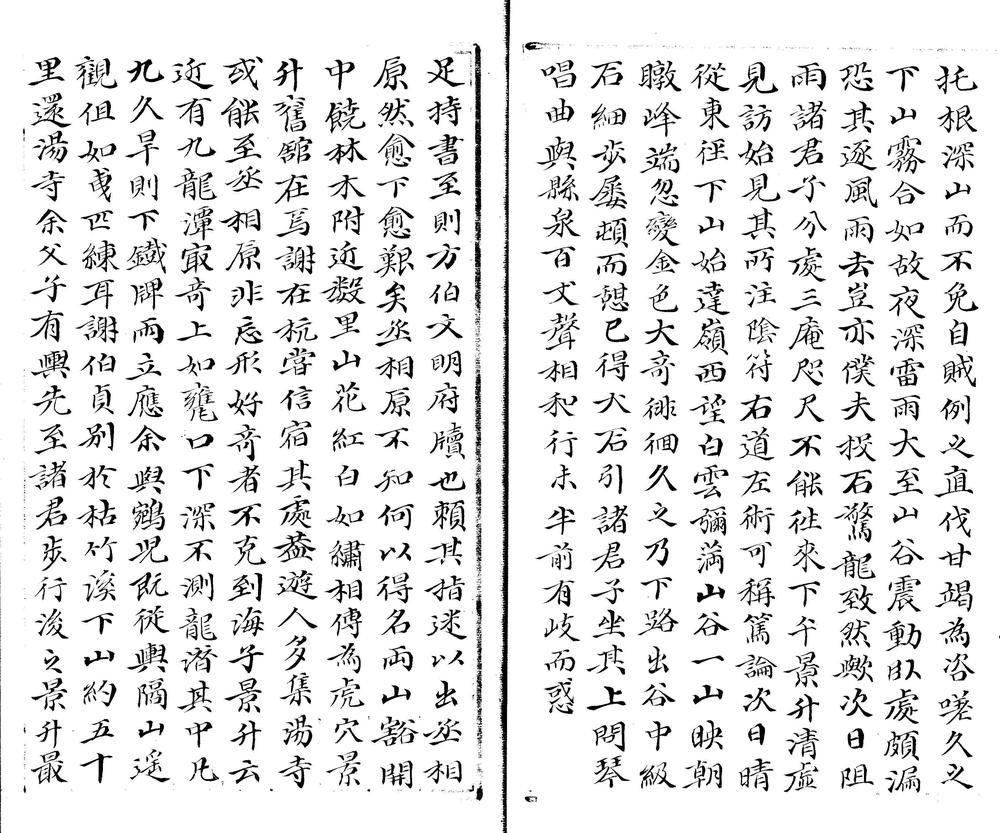 托根深山而不免自賊例之直伐甘竭為咨嗟久之
下山霧合如故夜深雷雨大至山谷震動臥處頗漏
恐其逐風雨去豈亦僕夫投石驚龍致然歟次日阻
雨諸君子分處三庵咫尺不能往來下午景升清虛
見訪始見其所注陰符右道左術可稱篤論次日晴
從東徑下山始達嶺西望白雲彌滿山谷一山映朝
暾峰端忽變金色大奇徘徊久之乃下路出谷中級
石細步屢頓而憩已得大石引諸君子坐其上問琴
唱曲與縣泉百丈聲相和行未半前有岐而惑
足持書至則方伯文明府牘也賴其指迷以出丞相
原然愈下愈艱矣丞相原不知何以得名兩山豁開
中饒林木附近數里山花紅白如繡相傳為虎穴景
升舊館在焉謝在杭嘗信宿其處蓋遊人多集湯寺
或能至丞相原非忘形好奇者不克到海子景升云
近有九龍潭最奇上如甕口下深不測龍潛其中凡
九久旱則下鐵牌雨立應余與鵷兒既從輿隔山遙
觀但如曳匹練耳謝伯貞別於枯竹溪下山約五十
里還湯寺余父子有輿先至諸君步行後之景升最